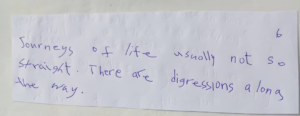 6
Journeys of life usually not so
straight. There are digressions along
the way.